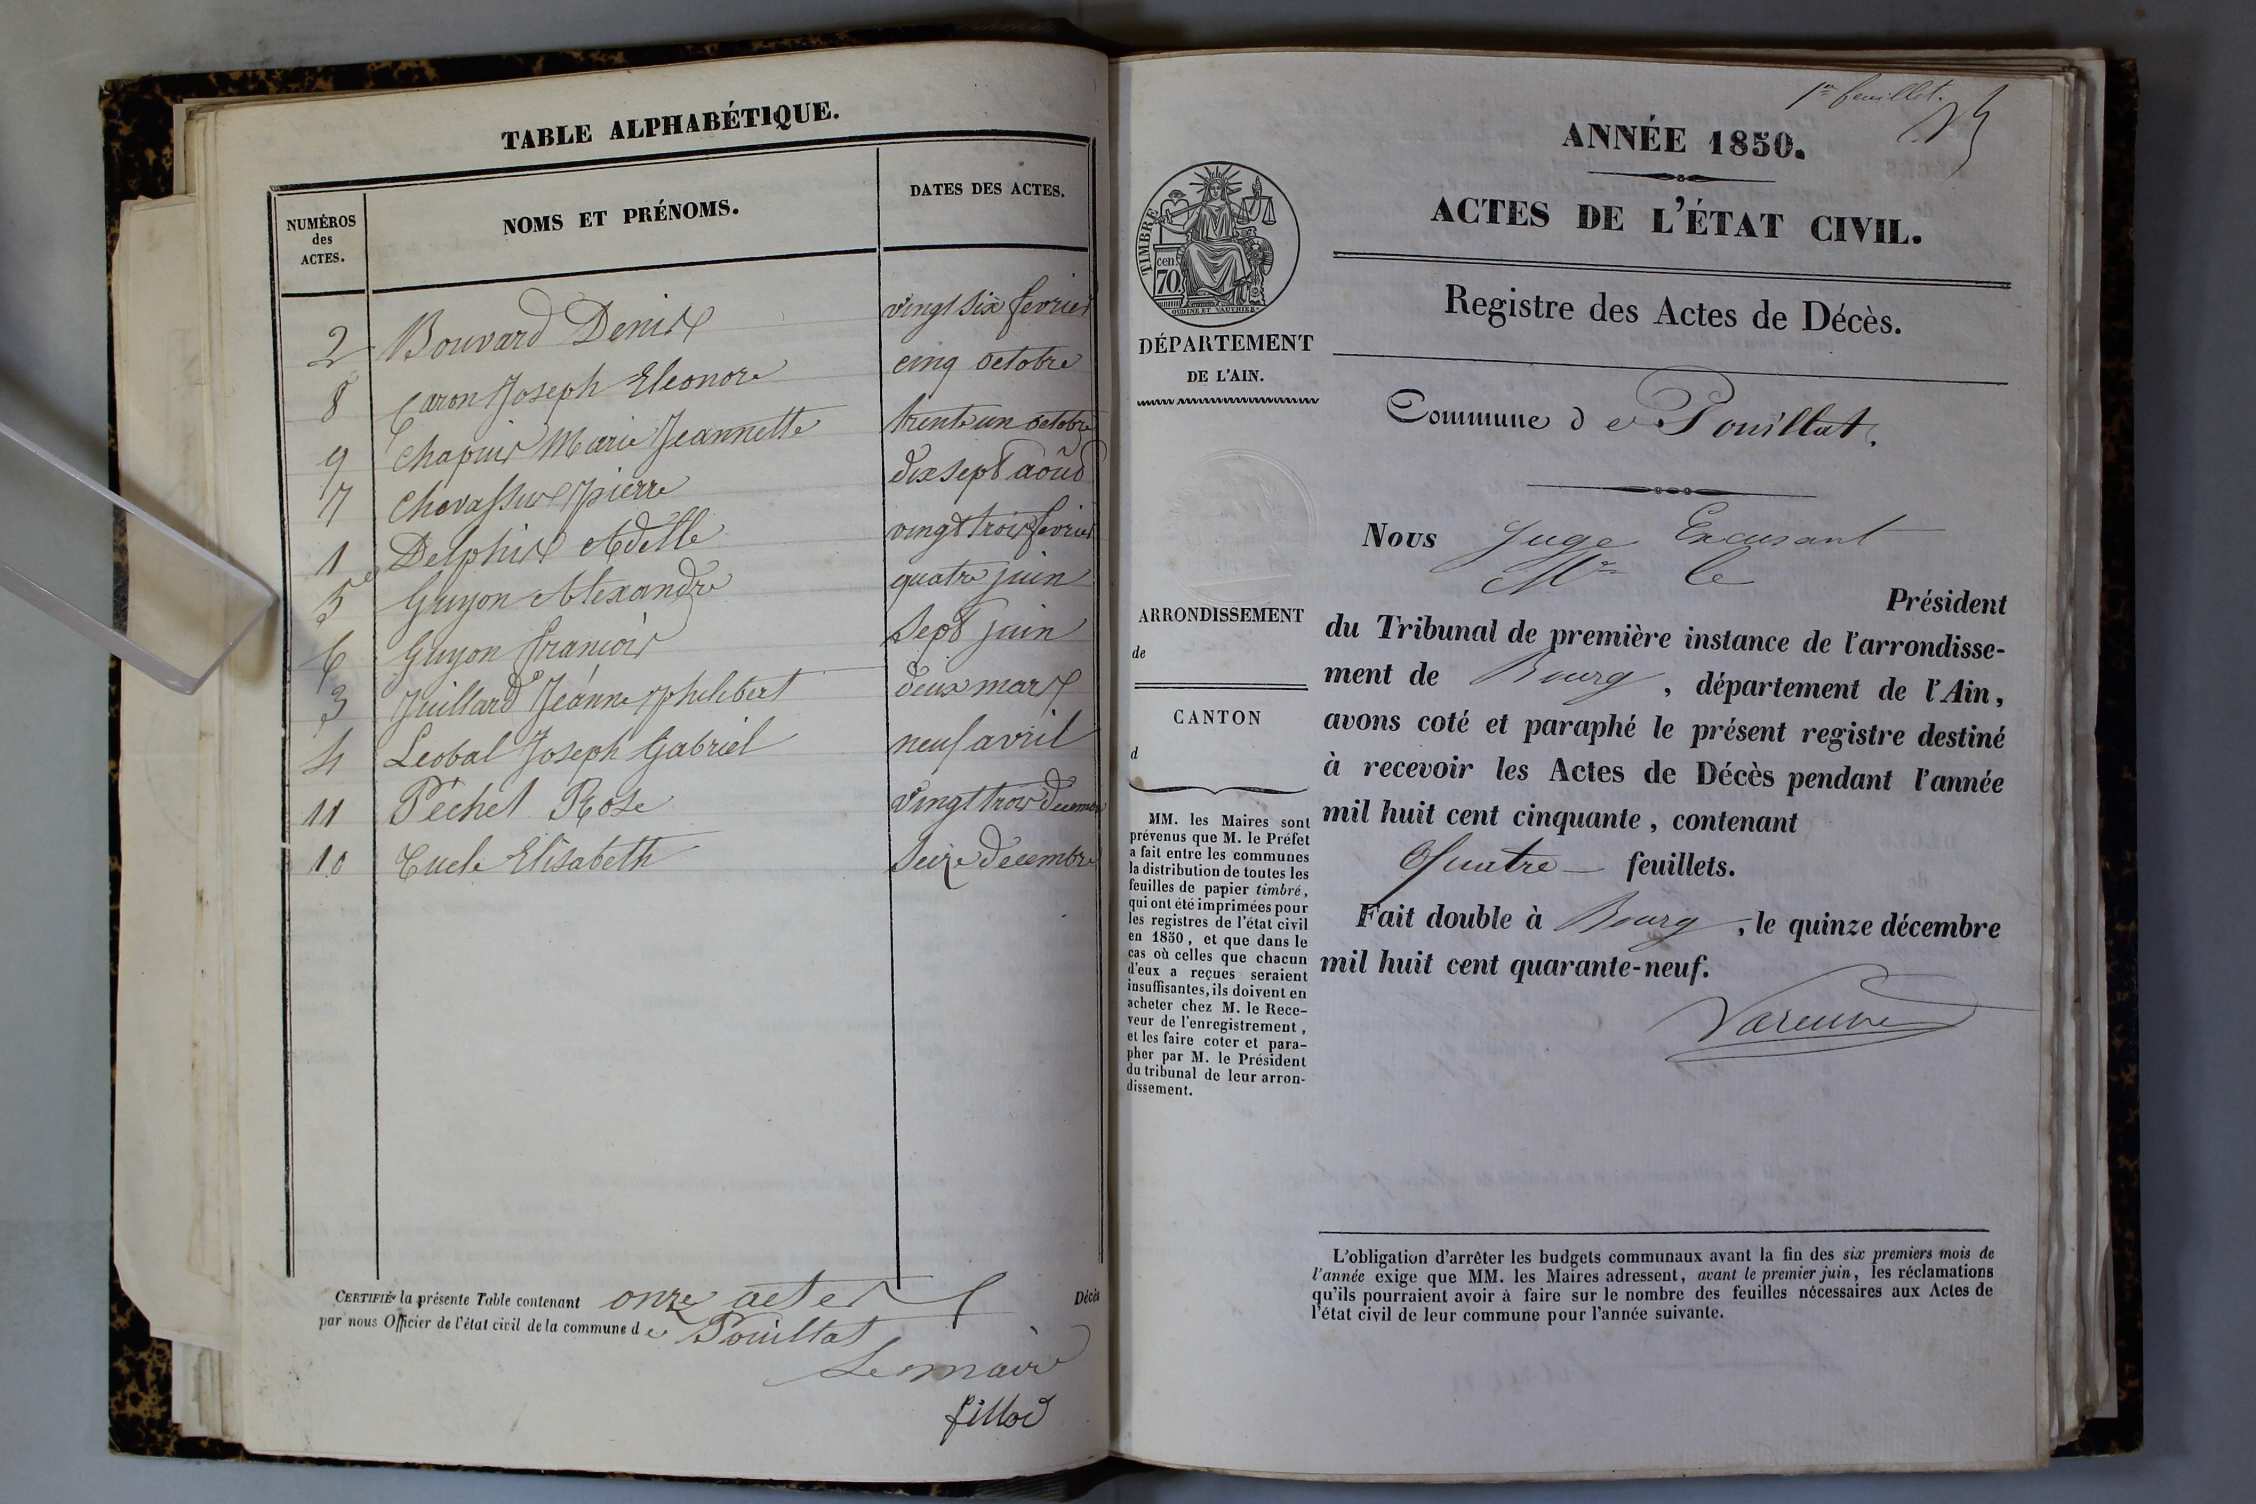 TABLE ALPHABÉTIQUE.
NUMÉROS
des
ACTES.
NOMS ET PRÉNOMS.
DATES DES ACTES.
2 Bouvard Denis vingt six fevrier
8 Caron Joseph Eleonore cinq octobre
9 Chapuis Marie Jeannette trente un octobre
7 Chavassus pierre dix sept août
1 Delphis Adelle vingt trois fevrier
5 Guyon Alexandre quatre juin
6 Guyon francois sept juin
3 Juillard Jeanne philibert deux mars
4 Leobal Joseph Gabriel neuf avril
11 Péchet Rose vingt trois decembre
10 Elisabeth seize decembre
CERTIFIÉ la présente Table contenant onze actes Décès
par nous Officier de l'état civil de la commune de Pouillat
Le maire
fillod
1er feuillet.
ANNÉE 1850.
ACTES DE L'ÉTAT CIVIL.
TIMBRE
cen.
70
OUDINE ET VAUTHIER
DÉPARTEMENT
DE L'AIN.
Registre des Actes de Décès.
Commune de Pouillat.
ARRONDISSEMENT
de
CANTON
d
MM. les Maires sont
prévenus que M. le Préfet
a fait entre les communes
la distribution de toutes les
feuilles de papier timbré,
qui ont été imprimées pour
les registres de l'état civil
en 1850, et que dans le
cas où celles que chacun
d'eux a reçues seraient
insuffisantes, ils doivent en
acheter chez M. le Rece-
veur de l'enregistrement,
et les faire coter et para-
pher par M. le Président
du tribunal de leur arron-
dissement.
Nous Juge Excusant
Mr le
Président
du Tribunal de première instance de l'arrondisse-
ment de Bourg, département de l'Ain,
avons coté et paraphé le présent registre destiné
à recevoir les Actes de Décès pendant l'année
mil huit cent cinquante, contenant
Quatre feuillets.
Fait double à Bourg, le quinze décembre
mil huit cent quarante-neuf.
L'obligation d'arrêter les budgets communaux avant la fin des six premiers mois de
l'année exige que MM. les Maires adressent, avant le premier juin, les réclamations
qu'ils pourraient avoir à faire sur le nombre des feuilles nécessaires aux Actes de
l'état civil de leur commune pour l'année suivante.